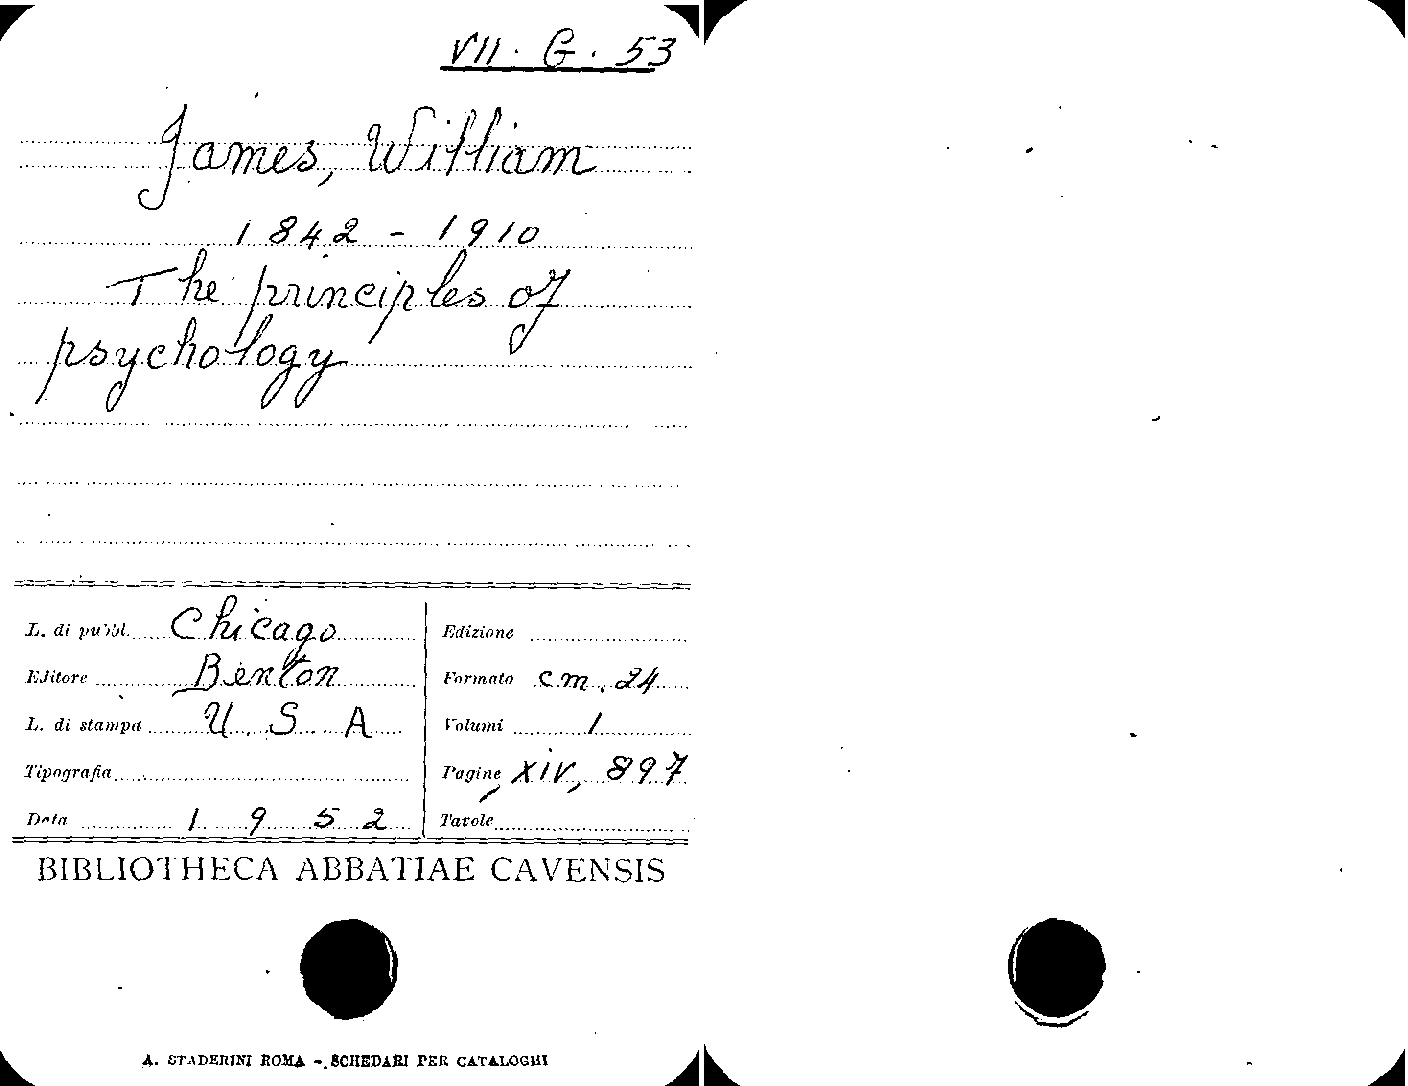 VII. G. 53
James, William
1842 - 1910
The principles of
psychology
L. di pubbl. Chicago
Editore Benton
L. di stampa U S A
Tipografia
Data 1952
Edizione
Formato cm. 24
Volumi 1
Pagine XIV, 897
Tavole
BIBLIOTHECA ABBATIAE CAVENSIS
A. STADERINI ROMA - SCHEDARI PER CATALOGHI